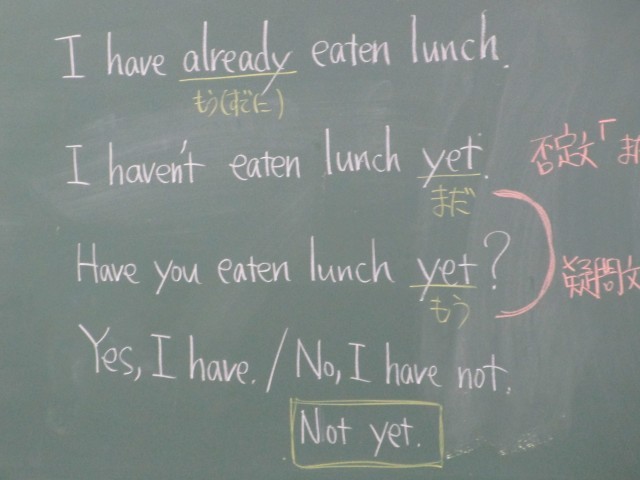 I have already eaten lunch.
もう(すでに)
I haven't eaten lunch yet.
否定文「ま
まだ
Have you eaten lunch yet?
疑問文
もう
Yes, I have. / No, I have not.
Not yet.